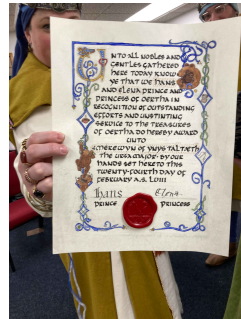 UNTO ALL NOBLES AND
GENTLES GATHERED
HERE TODAY KNOW
YE THAT WE HANS
AND ELENA PRINCE AND
PRINCESS OF OERTHA IN
RECOGNITION OF OUTSTANDING
EFFORTS AND UNSTINTING
SERVICE TO THE TREASURES
OF OERTHA DO HEREBY AWARD
UNTO
MEREWYN OF YNYS TALTAETH
THE URSA MAJOR. BY OUR
HANDS SET HERE TO THIS
TWENTY-FOURTH DAY OF
FEBRUARY A.S. LVIII
Hans Elena
PRINCE PRINCESS